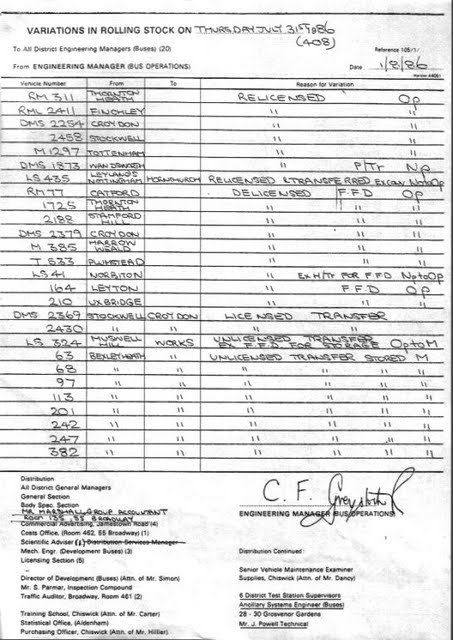 VARIATIONS IN ROLLING STOCK ON THURSDAY JULY 31ST 1986
(408)
To All District Engineering Managers (Buses) (20) Reference 105/1/
From ENGINEERING MANAGER (BUS OPERATIONS) Date 1/8/86
Vehicle Number From To Reason for Variation
RM 311 THORNTON HEATH RELICENSED Op
RML 2411 FINCHLEY " "
DMS 2254 CROYDON " "
2458 STOCKWELL " "
M 1297 TOTTENHAM " "
DMS 1873 WANDSWORTH " P/Tr Np
LS 435 LEYLANDS NOTTINGHAM HORNCHURCH RELICENSED & TRANSFERRED Ex CAV Np to Op
RM 77 CATFORD DELICENSED F.F.D Op
1725 THORNTON HEATH " " "
2188 STAMFORD HILL " " "
DMS 2379 CROYDON " " "
M 385 HARROW WEALD " " "
T 533 PLUMSTEAD " " "
LS 41 NORBITON " Ex H/Tr FOR F.F.D Np to Op
164 LEYTON " F.F.D Op
210 UXBRIDGE " " "
DMS 2369 STOCKWELL CROYDON LICENSED TRANSFER
2430 " " " "
LS 324 MUSWELL HILL WORKS UNLICENSED TRANSFER EX F.F.D. FOR STORAGE Op to M
63 BEXLEYHEATH " UNLICENSED TRANSFER STORED M
68 " " " " " "
97 " " " " " "
113 " " " " " "
201 " " " " " "
242 " " " " " "
247 " " " " " "
382 " " " " " "
Distribution
All District General Managers
General Section
Body Spec. Section
MR MARSHALL, GROUP ACCOUNTANT
ROOM 135, 55 BROADWAY
Commercial Advertising, Jamestown Road (4)
Costs Office, (Room 462, 55 Broadway) (1)
Scientific Adviser (1) Distribution Services Manager
Mech. Engr. (Development Buses) (3)
Licensing Section (5)
Director of Development (Buses) (Attn. of Mr. Simon)
Mr. S. Parmar, Inspection Compound
Traffic Auditor, Broadway, Room 461 (2)
Training School, Chiswick (Attn. of Mr. Carter)
Statistical Office, (Aldenham)
Purchasing Officer, Chiswick (Attn. of Mr. Hillier)
C. F.
ENGINEERING MANAGER (BUS OPERATIONS)
Distribution Continued:
Senior Vehicle Maintenance Examiner
Supplies, Chiswick (Attn. of Mr. Dancy)
6 District Test Station Supervisors
Ancillary Systems Engineer (Buses)
28 - 30 Grosvenor Gardens
Mr. J. Powell Technical